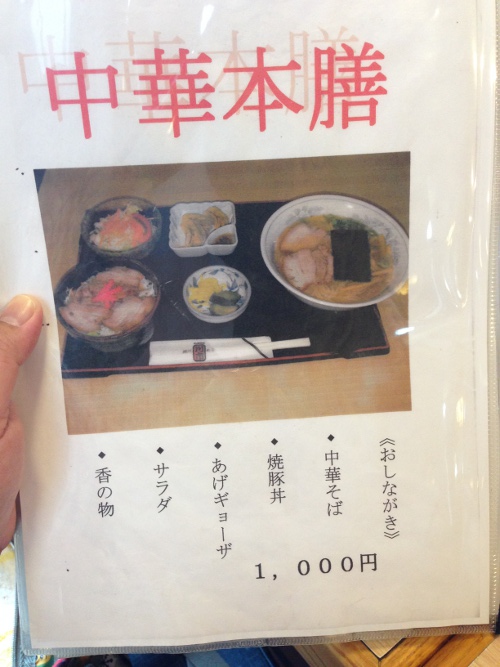 中華本膳
《おしながき》
◆中華そば
◆焼豚丼
◆あげギョーザ
◆サラダ
◆香の物
１，０００円